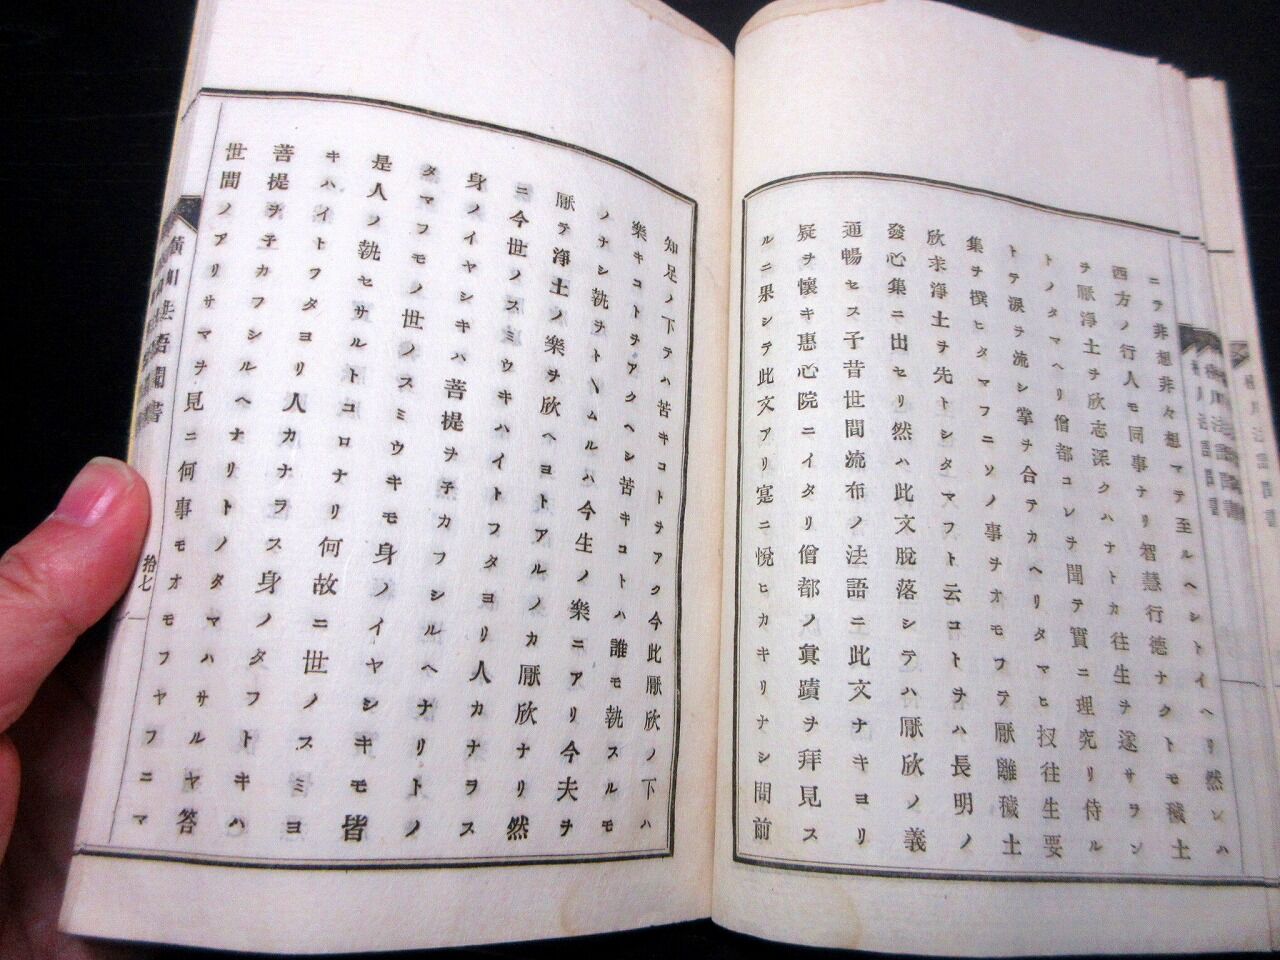 ニテ非想非々想マテ至ルヘシトイヘリ然レハ
西方ノ行人モ同事ナリ智慧行德ナクトモ穢土
ヲ厭淨土ヲ欣志深クハナトカ往生ヲ遂サラン
トノタマヘリ僧都コレヲ聞テ實ニ理究リ侍ル
トテ淚ヲ流シ掌ヲ合テカヘリタマヒ扠往生要
集ヲ撰ヒタマフニソノ事ヲオモフテ厭離穢土
欣求淨土ヲ先トシタマフト云コトヲハ長明ノ
發心集ニ出セリ然ハ此文脫落シテハ厭欣ノ義
通暢セス予昔世間流布ノ法語ニ此文ナキヨリ
疑ヲ懷キ惠心院ニイタリ僧都ノ眞蹟ヲ拜見ス
ルニ果シテ此文アリ寔ニ悅ヒカキリナシ問前
知足ノ下テハ苦キコトヲアク今此厭欣ノ下ハ
樂キコトヲアクヘシ苦キコトハ誰モ執スルモ
ノナシ執ヲトヽムルハ今生ノ樂ニアリ今夫ヲ
厭テ淨土ノ樂ヲ欣ヘヨトアルノカ厭欣ナリ然
ニ今世ノスミウキハイトフタヨリ人カナヲス
身ノイヤシキハ菩提ヲ子カフシルヘナリトノ
タマフモノ世ノスミウキモ身ノイヤシキモ皆
是人ノ執セサルトコロナリ何故ニ世ノスミヨ
キハイトフタヨリ人カナラス身ノタフトキハ
菩提ヲ子カフシルヘナリトノタマハサルヤ答
世間ノアリサマヲ見ニ何事モオモフヤフニマ
橫川法語聞書
拾七